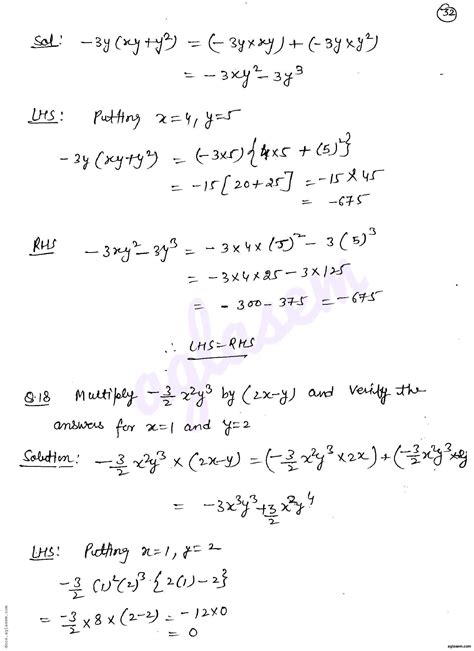 32
Sol: -3y(xy+y²) = (-3y×xy) + (-3y×y²)
= -3xy² - 3y³
LHS: Putting x=4, y=5
-3y(xy+y²) = (-3×5){4×5 + (5)²}
= -15[20+25] = -15×45
= -675
RHS -3xy² - 3y³ = -3×4×(5)² - 3(5)³
= -3×4×25 - 3×125
= -300 - 375 = -675
∴ LHS=RHS
aglasem
Q.18 Multiply -3/2 x²y³ by (2x-y) and verify the
answers for x=1 and y=2
Solution: -3/2 x²y³ × (2x-y) = (-3/2 x²y³ × 2x) + (-3/2 x²y³ × -y)
= -3x³y³ + 3/2 x²y⁴
LHS: Putting x=1, y=2
-3/2 (1)²(2)³ {2(1)-2}
= -3/2 × 8 × (2-2) = -12×0
= 0
docs.aglasem.com
aglasem.com